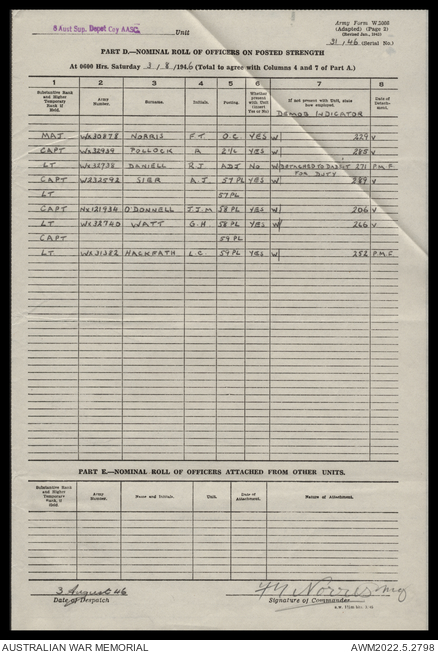 Army Form W.3008
(Adapted) (Page 2)
8 Aust Sup. Depot Coy AASC. Unit
31/46 (Serial No.)
PART D.—NOMINAL ROLL OF OFFICERS ON POSTED STRENGTH
At 0600 Hrs. Saturday 3/8/1946 (Total to agree with Columns 4 and 7 of Part A.)
1 2 3 4 5 6 7 8
Substantive Rank and Higher Temporary Rank if Held. Army Number. Surname. Initials. Posting. Whether present with Unit (Insert Yes or No) If not present with Unit, state how employed. Date of Detachment.
DEMOB INDICATOR
MAJ WX30878 NORRIS F.T O.C YES W/ 229 V
CAPT WX32939 POLLOCK R 2IC YES W/ 285 V
LT WX32738 DANIELL R.J ADJ NO W/ DETACHED TO FOR DUTY 271 PMF
CAPT SIER A.J 57 PL YES W/ 289 V
LT 57 PL
CAPT NX121934 O'DONNELL J.J.M 58 PL YES W/ 206 V
LT WX32740 WATT G.H 58 PL YES W/ 266 V
CAPT 59 PL
LT WX31382 MACKRATH L.C. 59 PL YES W/ 252 PMF
PART E.—NOMINAL ROLL OF OFFICERS ATTACHED FROM OTHER UNITS.
Substantive Rank and Higher Temporary Rank, if Held. Army Number. Name and Initials. Unit. Date of Attachment. Nature of Attachment.
3 August 46
Date of Despatch
Norris Maj
Signature of Commander
AUSTRALIAN WAR MEMORIAL AWM2022.5.2798